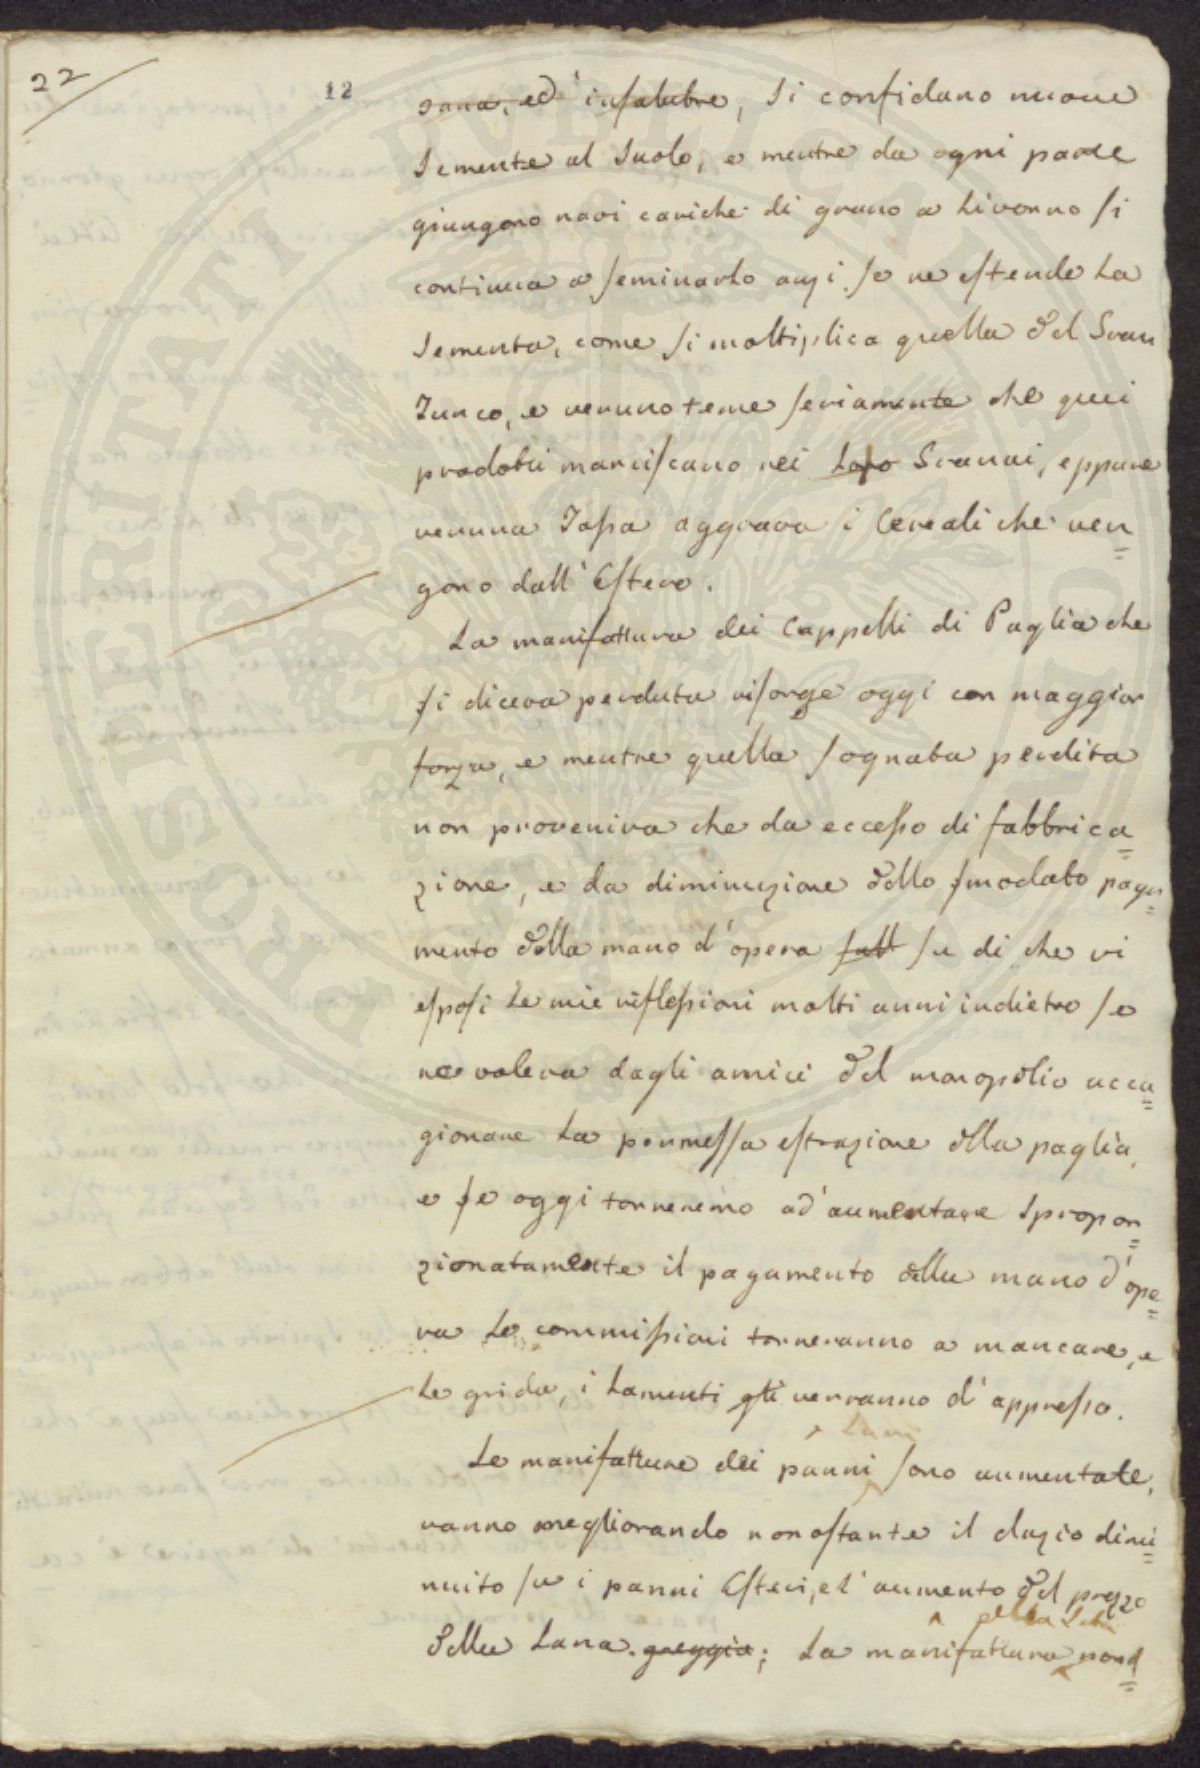 22
12
sana, ed' insalubre, si confidano nuove
semente al suolo, e mentre da ogni parte
giungono navi cariche di grano a Livorno si
continua a seminarlo anzi se ne estende la
sementa, come si moltiplica quella del Gran
Turco, e veruno teme seriamente che quei
prodotti marciscano nei loro Granai, eppure
veruna Tassa aggrava i Cereali che ven=
gono dall'Estero.
La manifattura dei Cappelli di Paglia che
si diceva perduta risorge oggi con maggior
forza, e mentre quella sognata perdita
non proveniva che da eccesso di fabbrica=
zione, e da diminuzione dello smodato paga=
mento della mano d'opera sull su di che vi
esposi le mie riflessioni molti anni indietro se
ne voleva dagli amici del monopolio acca=
gionare la permessa estrazione della paglia,
e se oggi torneremo ad' aumentare spropor=
zionatamente il pagamento della mano d'ope=
ra le commissioni torneranno a mancare, e
le grida, i lamenti gli verranno d'appresso.
Lani
Le manifatture dei panni sono aumentate,
vanno megliorando nonostante il dazio dimi=
nuito su i panni Esteri, e l'aumento del prezzo
della Seta
della Lana greggia; La manifattura pond=
PROSPERITATI PUBLICAE AUGENDAE